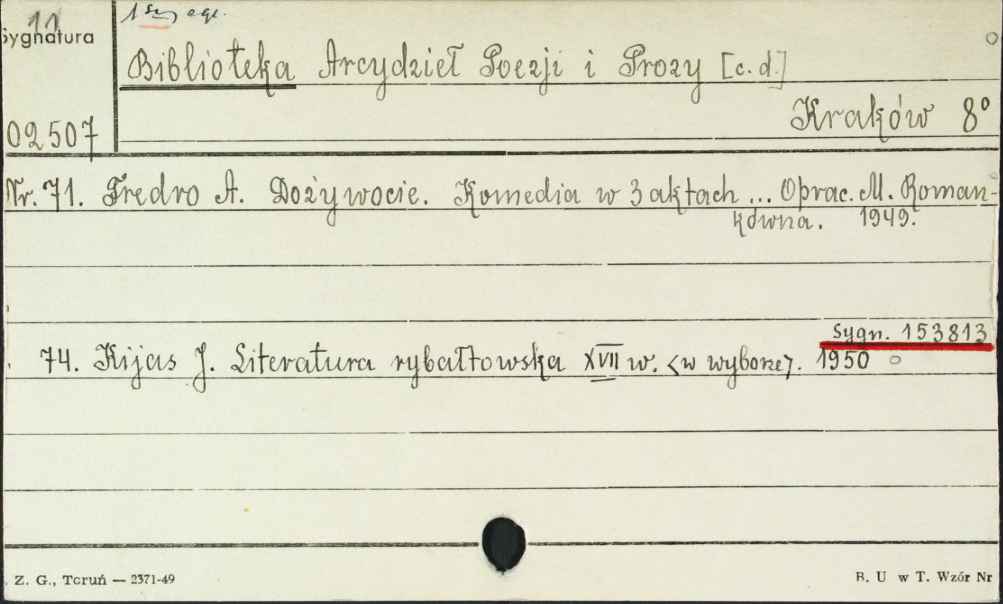 11
1 egz.
Sygnatura
Biblioteka Arcydzieł Poezji i Prozy [c.d.]
Kraków 8°
02507
Nr. 71. Fredro A. Dożywocie. Komedia w 3 aktach ... Oprac. M. Roman-
kówna. 1949.
Sygn. 153813
74. Kijas J. Literatura rybałtowska XVII w. <w wyborze>. 1950
Z. G., Toruń — 2371-49
B. U w T. Wzór Nr